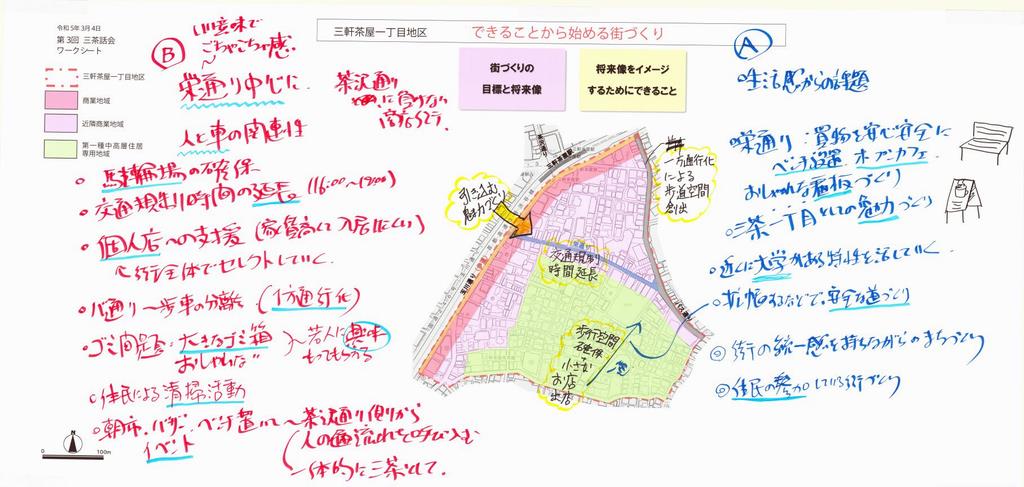 令和5年3月4日
第3回 三茶話会
ワークシート
三軒茶屋一丁目地区
商業地域
近隣商業地域
第一種中高層住居
専用地域
100m
三軒茶屋一丁目地区
できることから始める街づくり
街づくりの
目標と将来像
将来像をイメージ
するためにできること
B
いい意味で
ごちゃごちゃ感
栄通り中心に
茶沢通り
に負けない
人と車の関連性
駐輪場の確保
交通規制時間の延長 (16:00〜19:00)
個人店への支援 (家賃高くて入居しにくい)
行全体でセレクトしていく
バ通り〜歩車の分離 (一方通行化)
ゴミ問題:大きなゴミ箱
おしゃれな
若人に興味
もってもらえる
住民による清掃活動
朝市、バザー、ベンチ置いて〜茶沢通り側から
イベント
人の流れを呼び込む
一体的に三茶として
引き込む
魅力づくり
一方通行化
による
歩道空間
創出
交通規制
時間延長
歩行空間
確保
小さな
お店
出店
三軒茶屋駅
玉川通り
A
生活感からの話題
栄通り:買物を安心安全に
ベンチ設置 オープンカフェ
おしゃれな看板づくり
三茶一丁目としての魅力づくり
近くに大学がある特性を活していく
拡幅するなどで安全な道づくり
街の統一感を持ちながらのまちづくり
住民の参加している街づくり